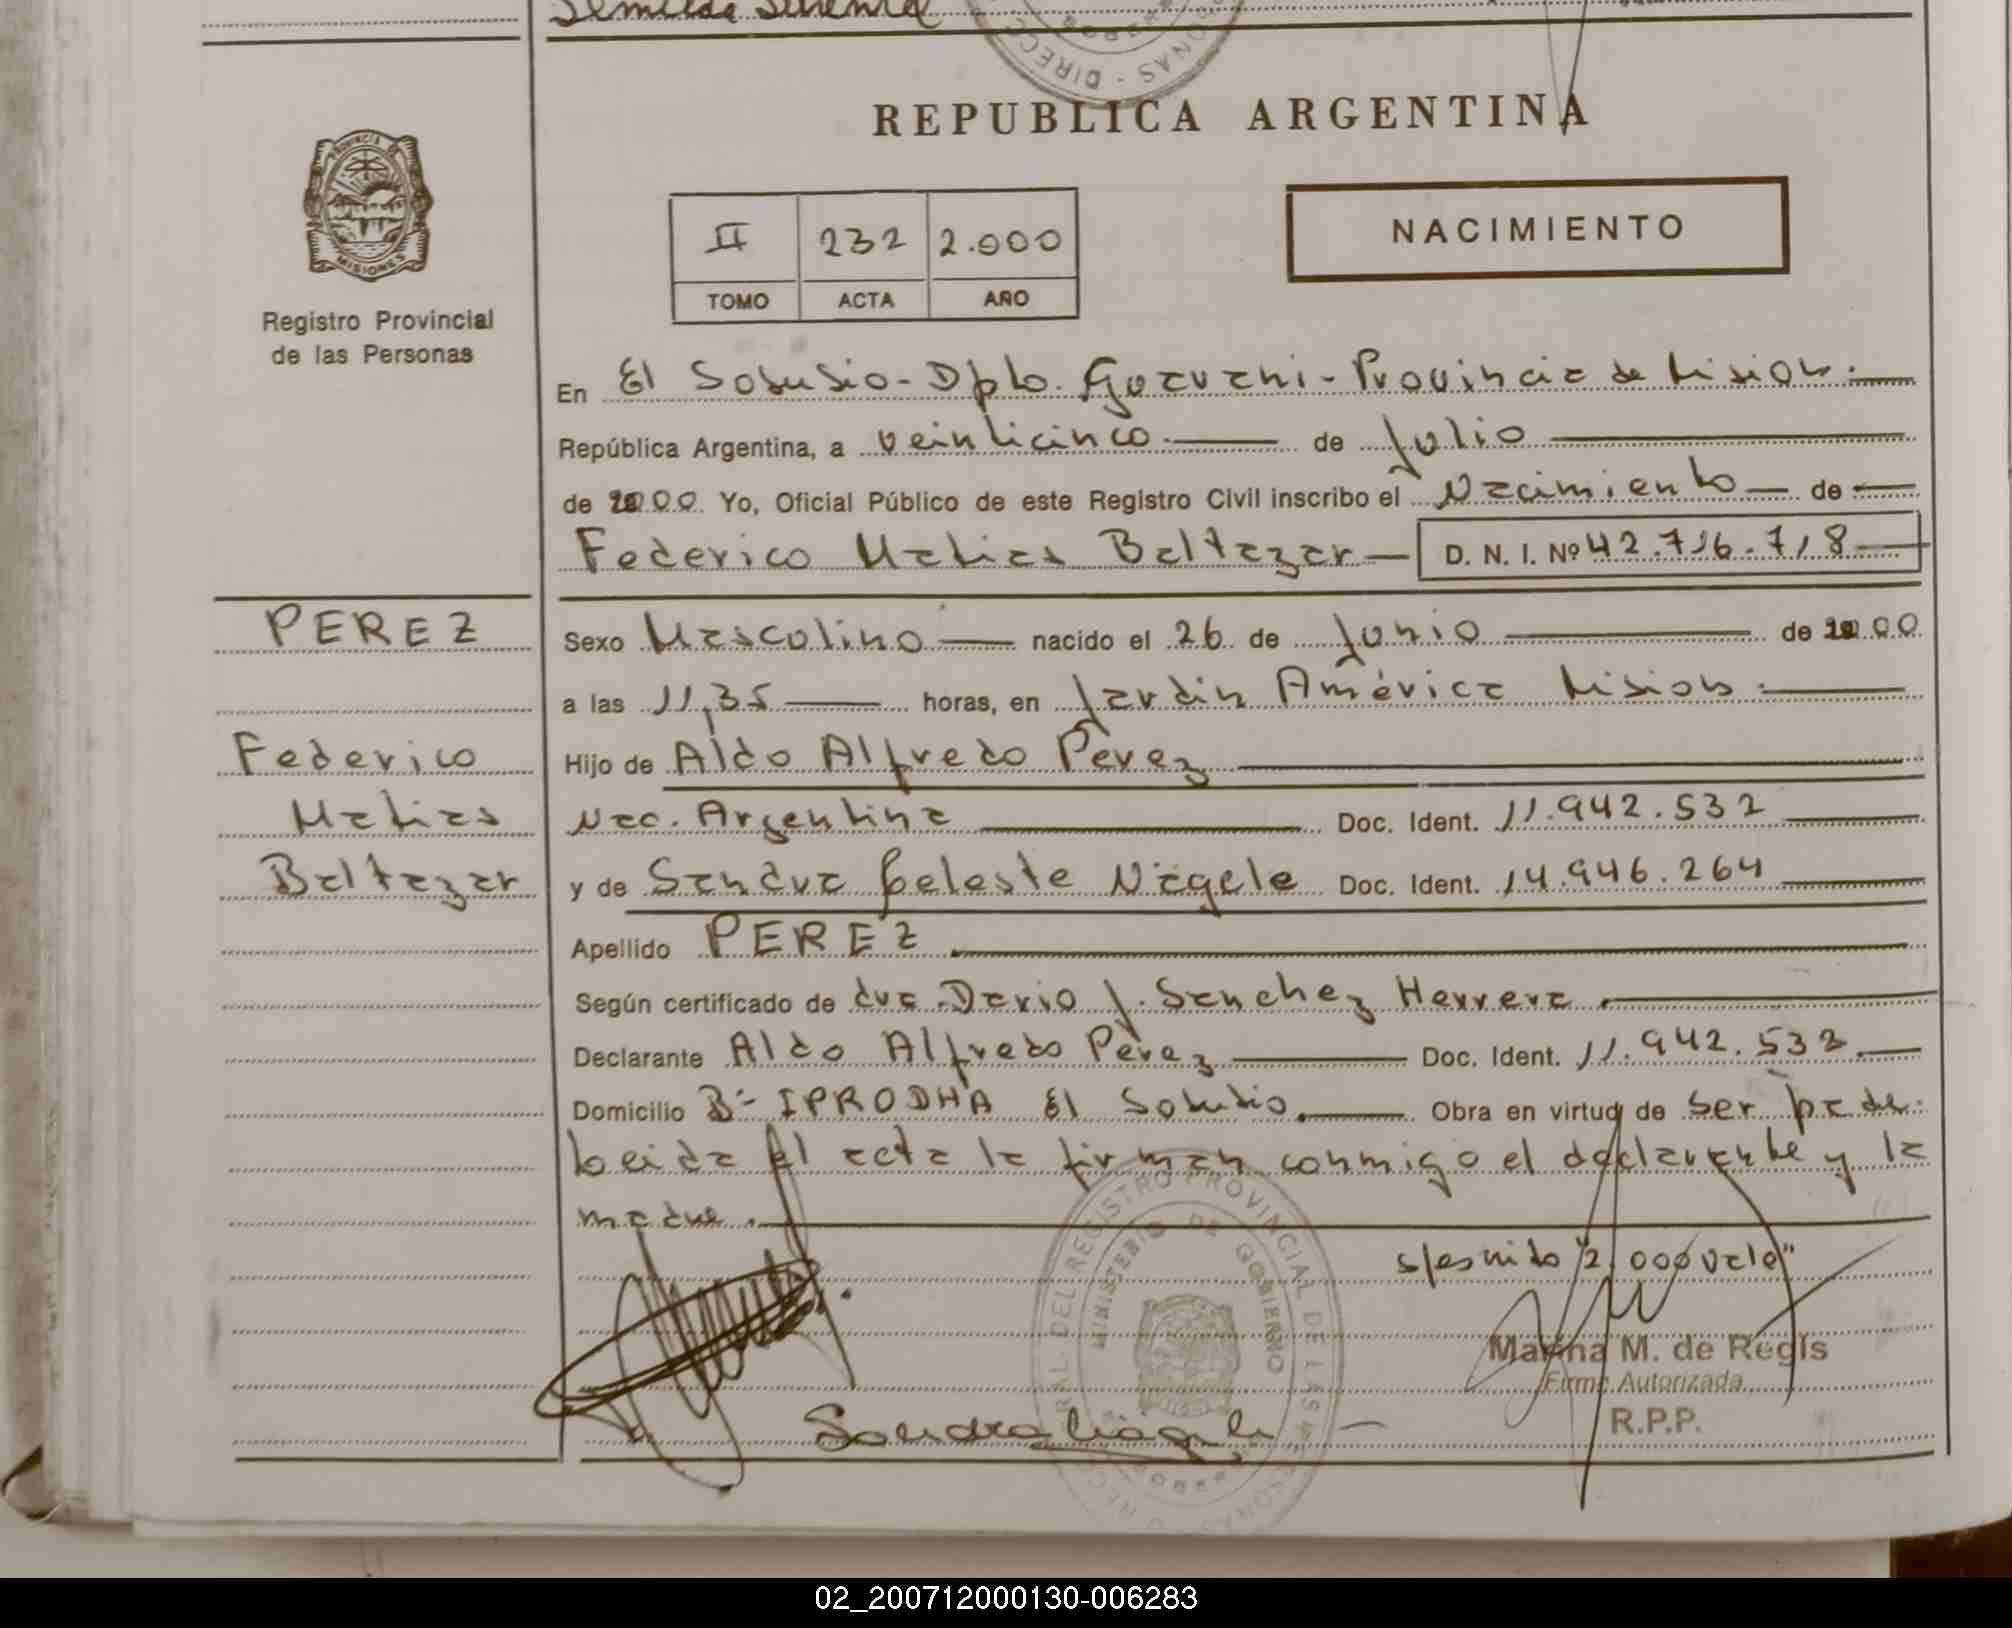 DIRECC
REPUBLICA ARGENTINA
PROVINCIA DE
MISIONES
Registro Provincial
de las Personas
II 232 2.000
TOMO ACTA AÑO
NACIMIENTO
En El Soberbio - Dpto. Guarani - Provincia de Mision.
República Argentina, a veinticinco de Julio
de 2000 Yo, Oficial Público de este Registro Civil inscribo el Nacimiento de
Federico Matias Baltazar D. N. I. Nº 42.716.718
PEREZ
Federico
Matias
Baltazar
Sexo Masculino nacido el 26 de Junio de 2000
a las 11,35 horas, en Jardin América Mision.
Hijo de Aldo Alfredo Perez
Nac. Argentina Doc. Ident. 11.942.532
y de Sandra Celeste Nägele Doc. Ident. 14.946.264
Apellido PEREZ
Según certificado de dra. Dario J. Sanchez Herrera
Declarante Aldo Alfredo Perez Doc. Ident. 11.942.532
Domicilio Bº IPRODHA El Soberbio. Obra en virtud de ser padre.
Leida el acta la firman conmigo el declarante y la
madre.
s/escrito "2.000 vale"
REGISTRO PROVINCIAL DE LAS PERSONAS
MINISTERIO DE GOBIERNO
Marina M. de Regis
Firma Autorizada
R.P.P.
Sandra Nägele
02_200712000130-006283